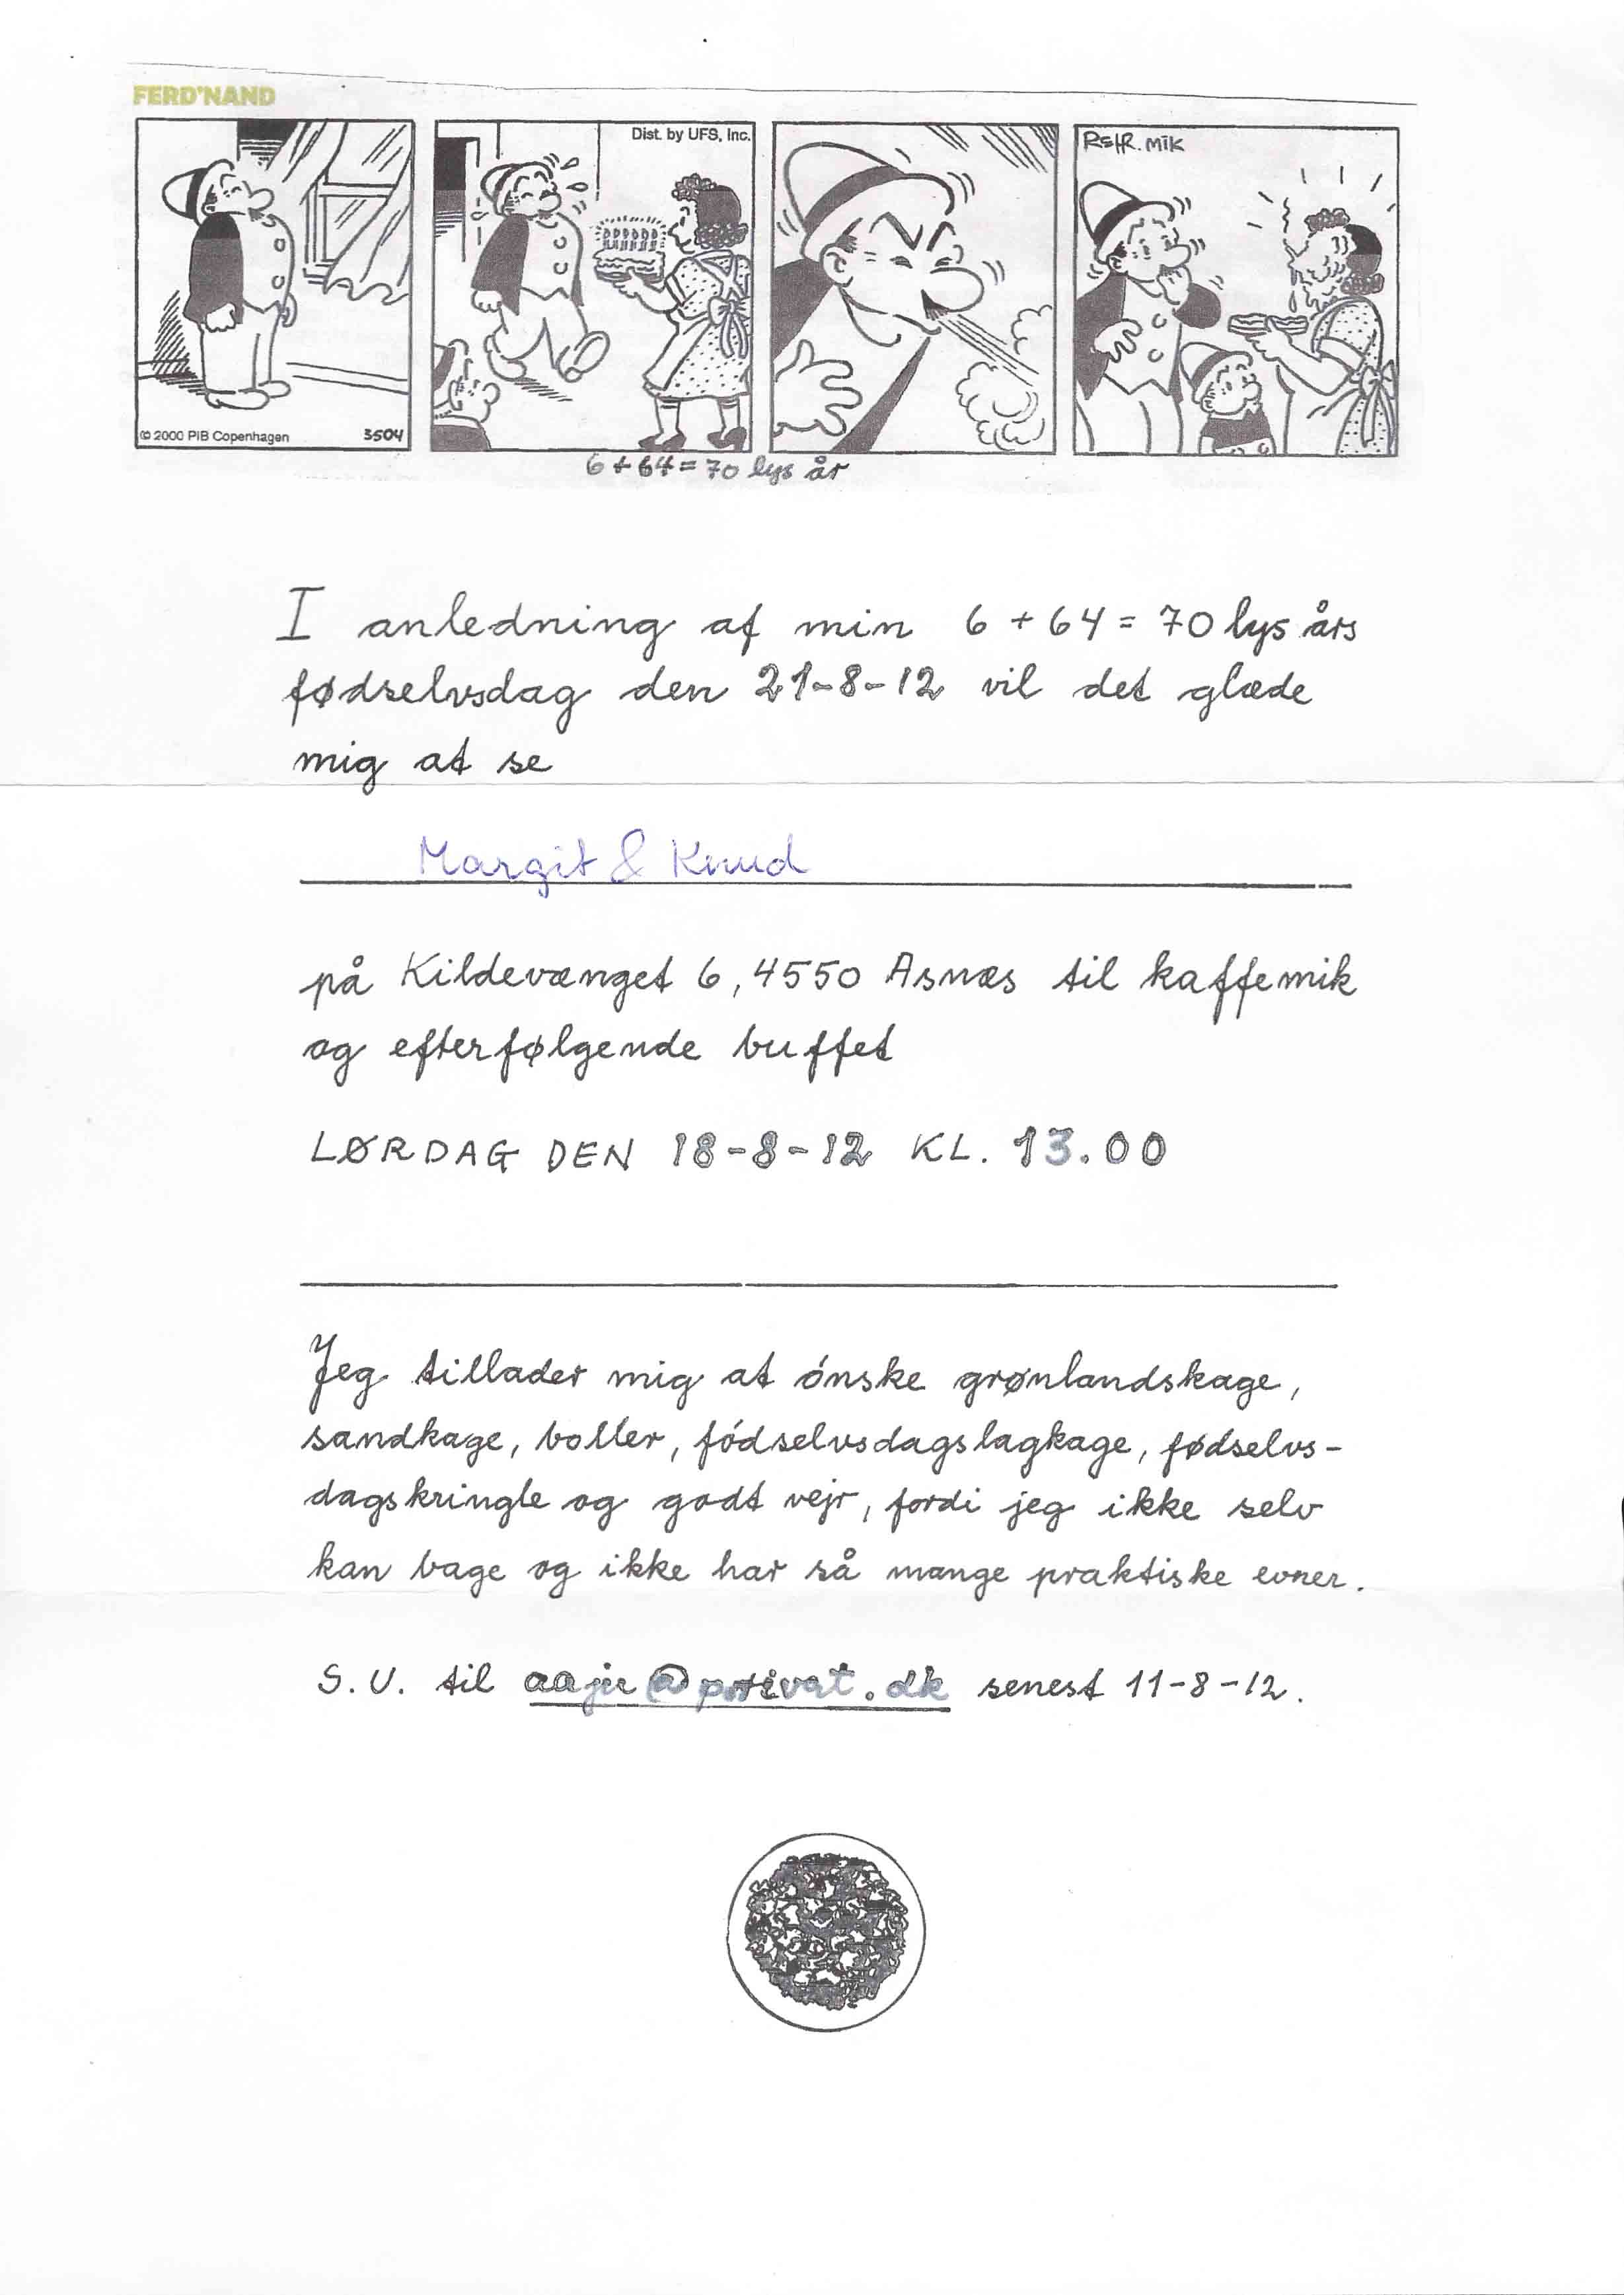 FERD'NAND
Dist. by UFS, Inc.
REHR. MIK
© 2000 PIB Copenhagen 3504
6 + 64 = 70 lys år
I anledning af min 6 + 64 = 70 lys års
fødselvsdag den 21-8-12 vil det glæde
mig at se
Margit & Knud
på Kildevænget 6, 4550 Asnæs til kaffemik
og efterfølgende buffet
LØRDAG DEN 18-8-12 KL. 13.00
Jeg tillader mig at ónske grønlandskage,
sandkage, boller, fódselvsdagslagkage, fødselvs-
dagskringle og godt vejr, fordi jeg ikke selv
kan bage og ikke har så mange praktiske evner.
S.U. til @privat.dk senest 11-8-12.